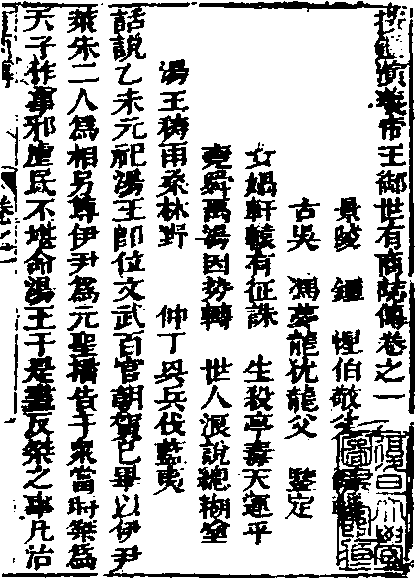 按鑑演義帝王御世有商誌傳卷之一
景陵 鍾 惺伯敬父
古吳 馮夢龍猶龍父 鑒定
女媧軒轅有征誅 生殺亭毒天運平
堯舜禹湯因勢轉 世人浪說總糊塗
湯王禱雨桑林野 仲丁興兵伐藍夷
話說乙未元祀湯王即位文武百官朝賀已畢以伊尹
萊朱二人爲相另尊伊尹爲元聖播告于衆當時桀爲
天子作事邪虐民不堪命湯王于是盡反桀之事凡治
卷之一